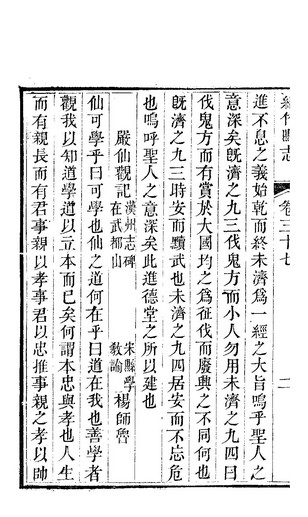 縣志 卷三十七 二
進不息之義始乾而終未濟爲一經之大旨嗚乎聖人之
意深矣旣濟之九三伐鬼方而小人勿用未濟之九四曰
伐鬼方而有賞於大國均之爲征伐而廢興之不同何也
旣濟之九三時安而黷武也未濟之九四居安而不忘危
也嗚呼聖人之意深矣此進德堂之所以建也
嚴仙觀記 漢州志碑在武都山 宋縣學教諭 楊師魯
仙可學乎曰可學也仙之道何在乎曰道在我也善學者
觀我以知道學道以立本而已矣何謂本忠與孝也人生
而有親長而有君事親以孝事君以忠推事親之孝以帥